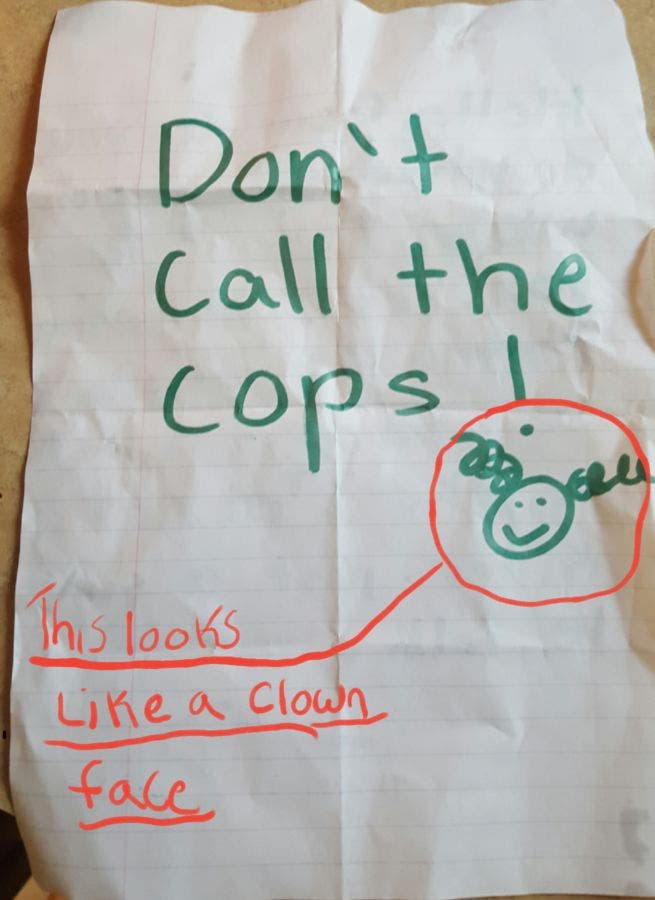 Don't
Call the
Cops !
This looks
Like a Clown
face